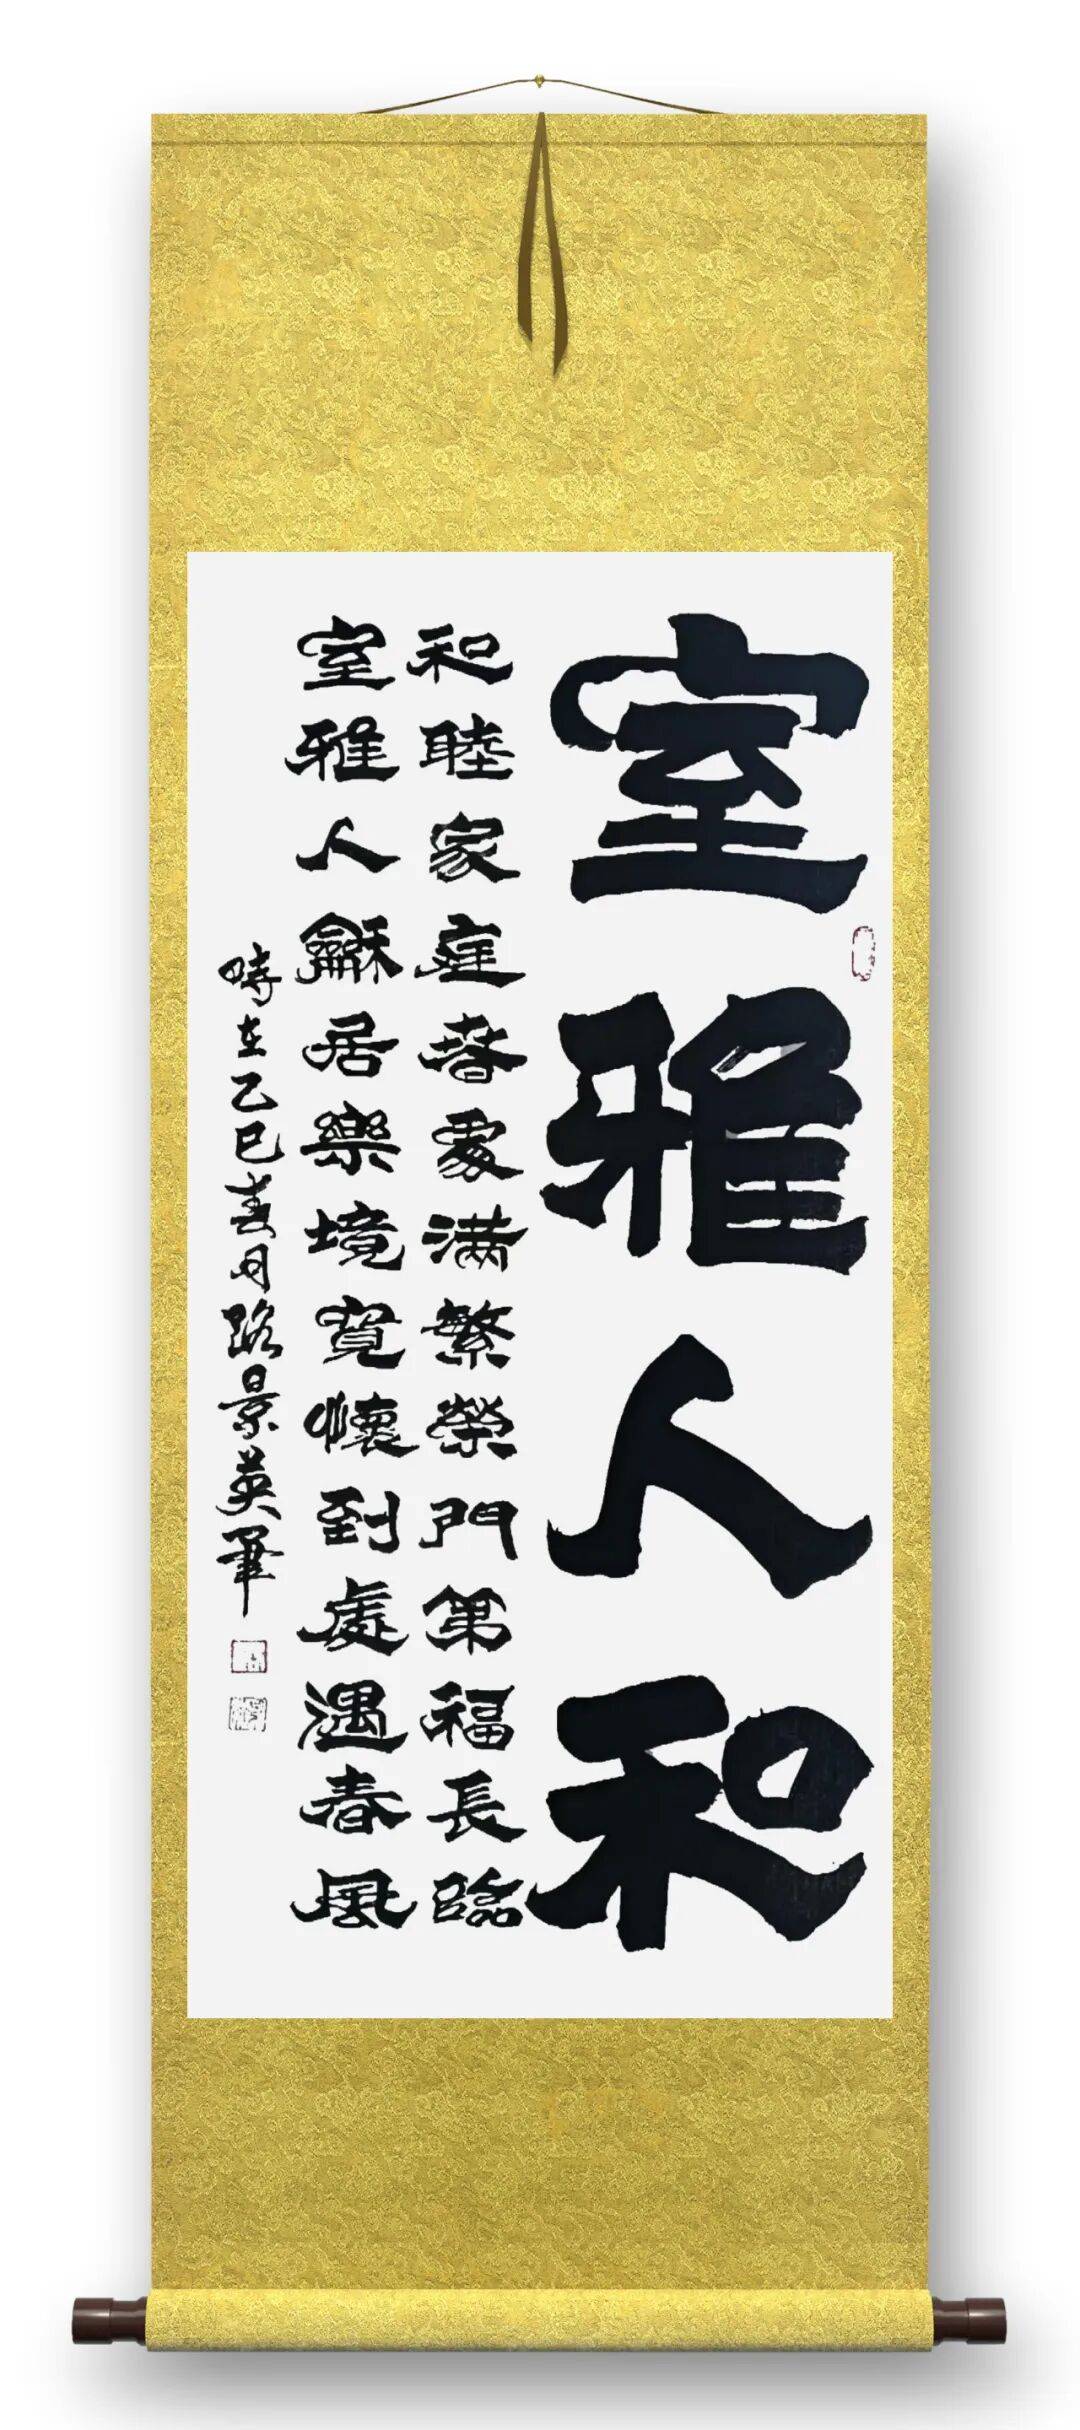 室雅人和
和睦家庭春满繁榮門第福長臨
室雅人龢居樂境寬懷到處遇春風
時在乙巳春月路景英筆